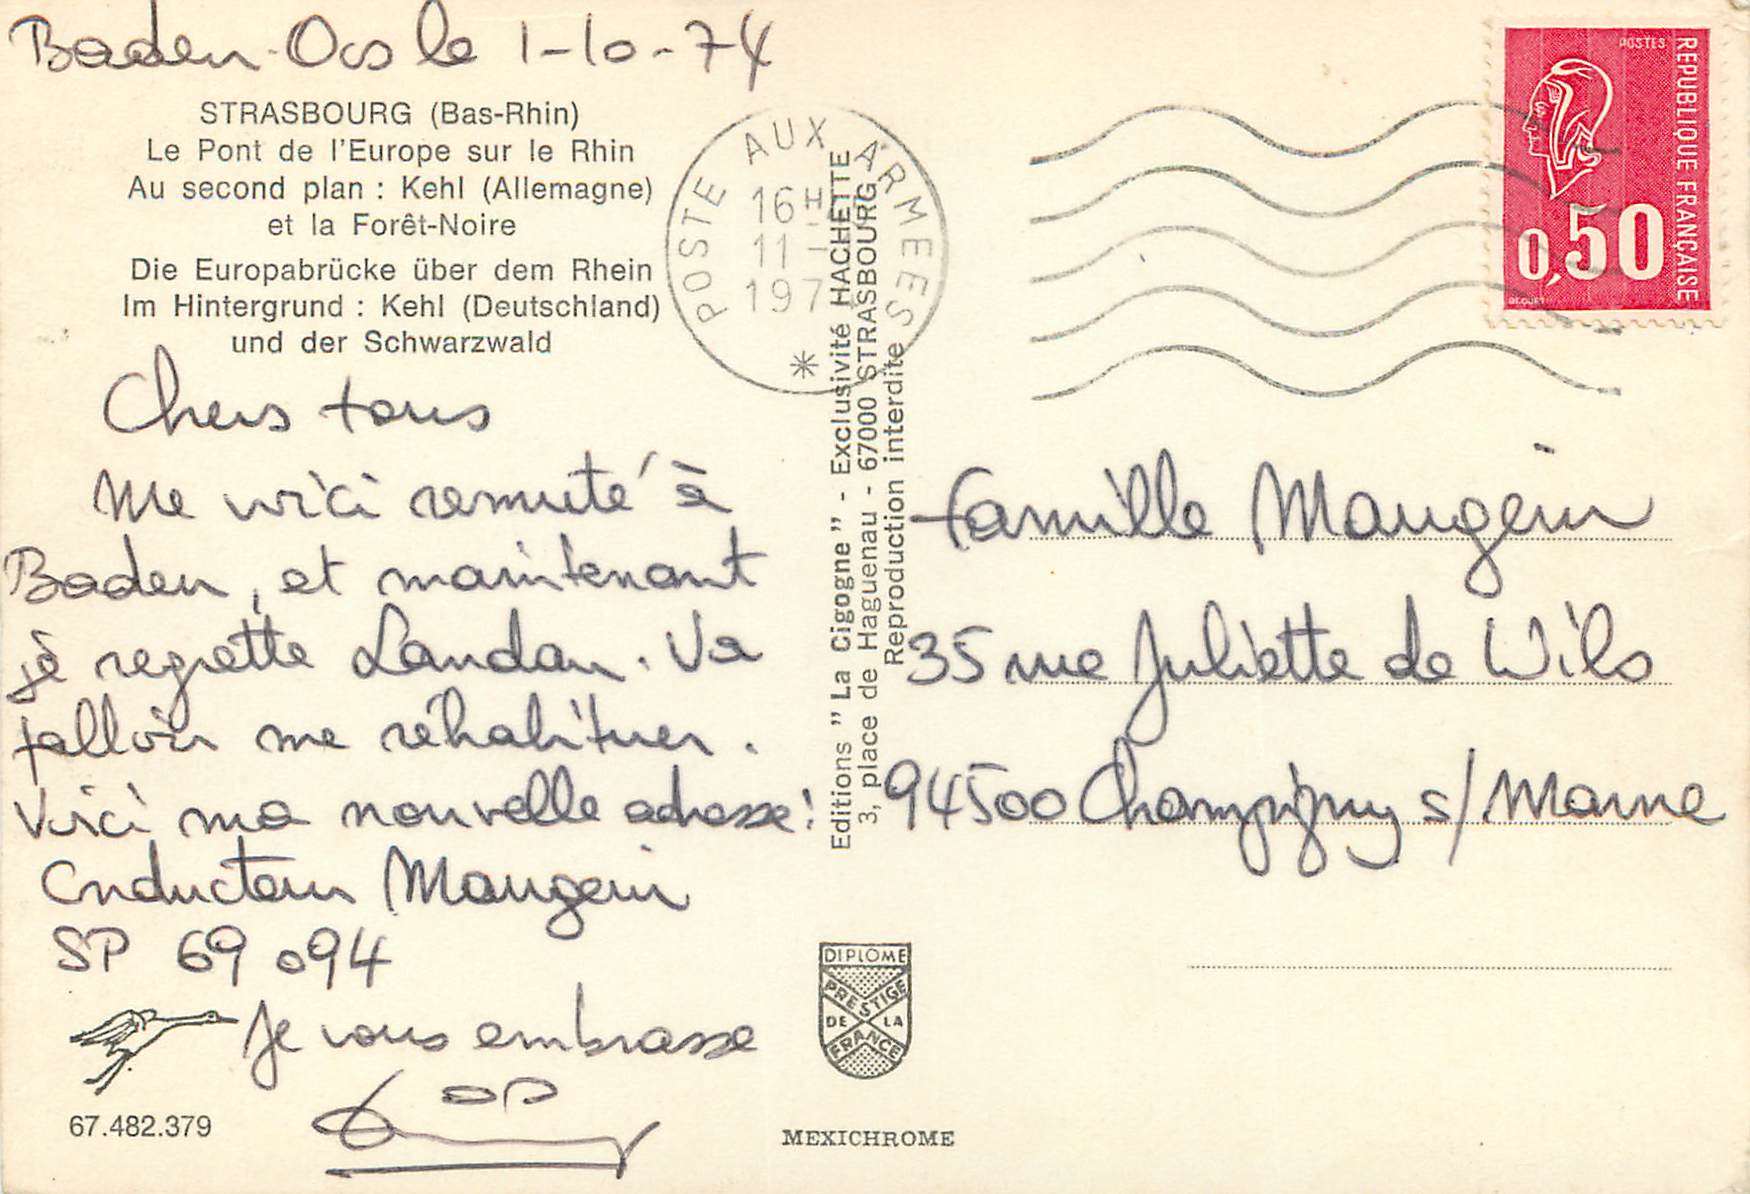 Baden-Oos le 1-10-74
STRASBOURG (Bas-Rhin)
Le Pont de l'Europe sur le Rhin
Au second plan : Kehl (Allemagne)
et la Forêt-Noire
Die Europabrücke über dem Rhein
Im Hintergrund : Kehl (Deutschland)
und der Schwarzwald
Chers tous
Me voici remuté à
Baden, et maintenant
je regrette Landau. Va
falloir me réhabituer.
Voici ma nouvelle adresse:
Conducteur Maugein
SP 69 094
Je vous embrasse
67.482.379
POSTE AUX ARMEES
16H
11-
197
Editions "La Cigogne" - Exclusivité HACHETTE
3, place de Haguenau - 67000 STRASBOURG
Reproduction interdite
DIPLOME
PRESTIGE
DE LA
FRANCE
MEXICHROME
POSTES
REPUBLIQUE FRANÇAISE
0,50
BEQUET
Famille Maugein
35 rue Juliette de Wils
94500 Champigny s/Marne